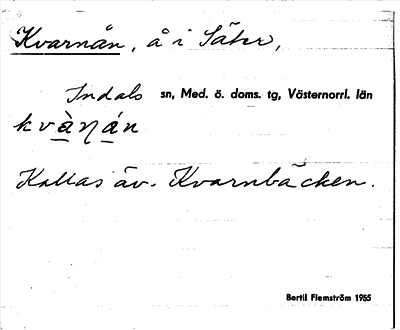 Kvarnån, å i Säter,
Indals sn, Med. ö. doms. tg, Västernorrl. län
kvàṇán
Kallas äv. Kvarnbäcken.
Bertil Flemström 1955